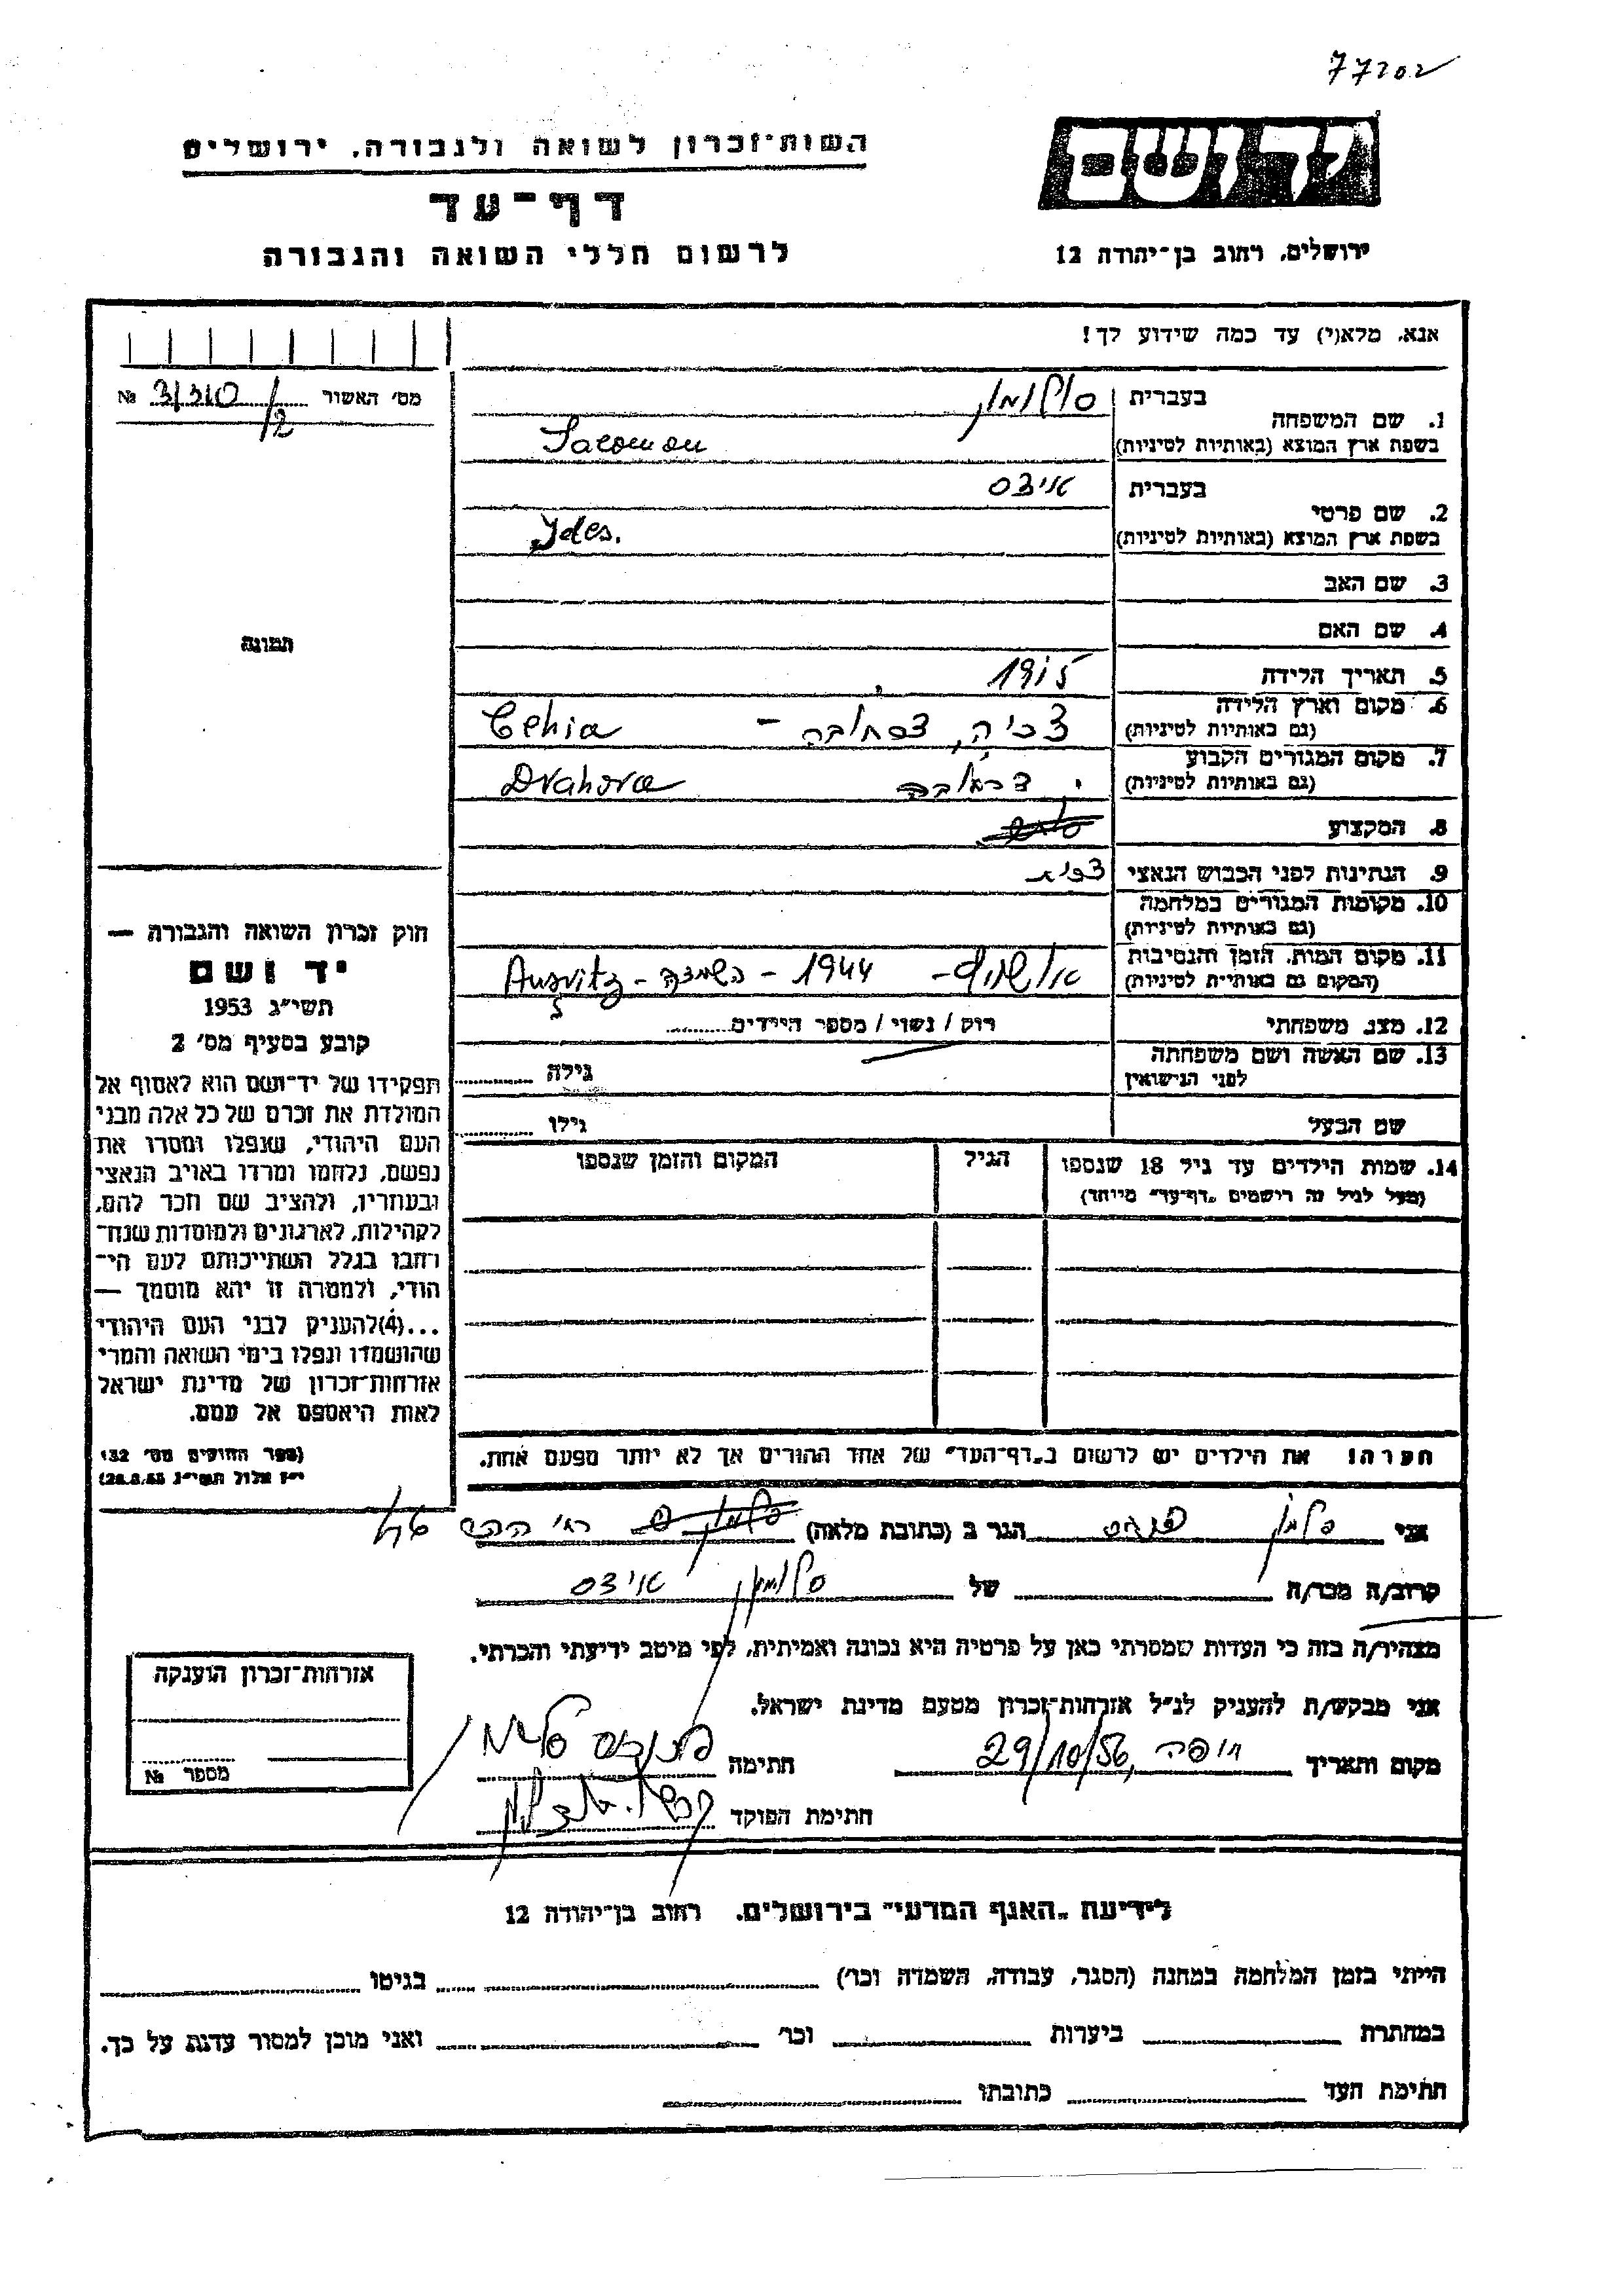 77202
יד ושם
ירושלים, רחוב בן־יהודה 12
השות־זכרון לשואה ולגבורה, ירושלים
דף־עד
לרשום חללי השואה והגבורה
אנא, מלא(י) עד כמה שידוע לך!
מס' האשור 3/310/2 №
1. שם המשפחה
בעברית סולומון
בשפת ארץ המוצא (באותיות לטיניות) Salomon
2. שם פרטי
בעברית אידס
בשפת ארץ המוצא (באותיות לטיניות) Ydes.
3. שם האב
4. שם האם
5. תאריך הלידה 1915
6. מקום וארץ הלידה
(גם באותיות לטיניות) צכיה, - Cehia
7. מקום המגורים הקבוע
(גם באותיות לטיניות) Drahova
8. המקצוע
9. הנתינות לפני הכבוש הנאצי צכית
10. מקומות המגורים במלחמה
(גם באותיות לטיניות)
11. מקום המות, הזמן והנסיבות
(המקום גם באותיית לטיניות) אושויץ - 1944 - השמדה - Ausvitz
12. מצב משפחתי רוק / נשוי / מספר הילדים
13. שם האשה ושם משפחתה
לפני הנישואין גילה
שם הבעל גילו
14. שמות הילדים עד גיל 18 שנספו
(מעל לגיל זה רישמים „דף־עד" מייחד)
הגיל
המקום והזמן שנספו
תמונה
חוק זכרון השואה והגבורה —
יד ושם
תשי"ג 1953
קובע בסעיף מס' 2
תפקידו של יד־ושם הוא לאסוף אל
המולדת את זכרם של כל אלה מבני
העם היהודי, שנפלו ומסרו את
נפשם, נלחמו ומרדו באויב הנאצי
ובעוזריו, ולהציב שם וזכר להם,
לקהילות, לארגונים ולמוסדות שנח־
רחבו בגלל השתייכותם לעם הי־
הודי, ולמטרה זו יהא מוסמך —
...(4)להעניק לבני העם היהודי
שהושמדו ונפלו בימי השואה והמרי
אזרחות־זכרון של מדינת ישראל
לאות היאספם אל עמם.
(ספר החוקים מס' 132
י"ז אלול תשי"ג 28.8.53)
הערה! את הילדים יש לרשום ב„דף־העד" של אחד ההורים אך לא יותר מפעם אחת.
אני סלמון פנחס הגר ב (כתובת מלאה)
קרוב/ה מכר/ה של סולומון אידס
מצהיר/ה בזה כי העדות שמסרתי כאן על פרטיה היא נכונה ואמיתית, לפי מיטב ידיעתי והכרתי.
אני מבקש/ת להעניק לנ"ל אזרחות־זכרון מטעם מדינת ישראל.
מקום ותאריך חיפה, 29/10/56 חתימה פנחס סלומון
חתימת הפוקד
אזרחות־זכרון הוענקה
מספר №
לידיעת „האגף המדעי" בירושלים, רחוב בן־יהודה 12
הייתי בזמן המלחמה במחנה (הסגר, עבודה, השמדה וכו') בגיטו
במחתרת ביערות וכו' ואני מוכן למסור עדות על כך.
חתימת העד כתובתו